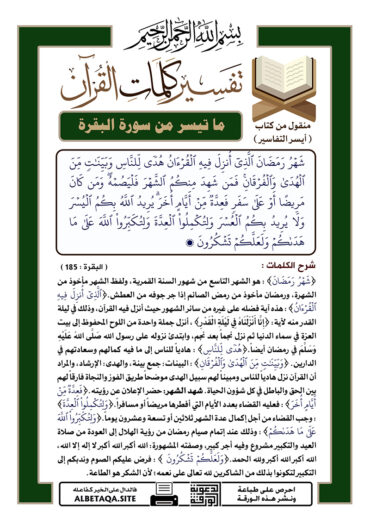 بسم الله الرحمن الرحيم
تفسير كلمات القرآن
ما تيسر من سورة البقرة
منقول من كتاب
( أيسر التفاسير )
شَهْرُ رَمَضَانَ ٱلَّذِىٓ أُنزِلَ فِيهِ ٱلْقُرْءَانُ هُدًى لِّلنَّاسِ وَبَيِّنَـٰتٍ مِّنَ
ٱلْهُدَىٰ وَٱلْفُرْقَانِ ۚ فَمَن شَهِدَ مِنكُمُ ٱلشَّهْرَ فَلْيَصُمْهُ ۖ وَمَن كَانَ
مَرِيضًا أَوْ عَلَىٰ سَفَرٍ فَعِدَّةٌ مِّنْ أَيَّامٍ أُخَرَ ۗ يُرِيدُ ٱللَّهُ بِكُمُ ٱلْيُسْرَ
وَلَا يُرِيدُ بِكُمُ ٱلْعُسْرَ وَلِتُكْمِلُوا۟ ٱلْعِدَّةَ وَلِتُكَبِّرُوا۟ ٱللَّهَ عَلَىٰ مَا
هَدَىٰكُمْ وَلَعَلَّكُمْ تَشْكُرُونَ
شرح الكلمات :
( البقرة : 185 )
﴿شَهْرُ رَمَضَانَ﴾ : هو الشهر التاسع من شهور السنة القمرية، ولفظ الشهر مأخوذ من
الشهرة، ورمضان مأخوذ من رمض الصائم إذا حر جوفه من العطش. ﴿الَّذِيٓ أُنزِلَ فِيهِ
الْقُرْءَانُ﴾ : هذه آية فضله على غيره من سائر الشهور حيث أنزل فيه القرآن، وذلك في ليلة
القدر منه لآية : ﴿إِنَّا أَنزَلْنَاهُ فِي لَيْلَةِ الْقَدْرِ﴾ ، أنزل جملة واحدة من اللوح المحفوظ إلى بيت
العزة في سماء الدنيا ثم نزل نجماً بعد نجم، وابتدئ نزوله على رسول الله صلى الله عليه
وسلم في رمضان أيضاً. ﴿هُدًى لِّلنَّاسِ﴾ : هادياً للناس إلى ما فيه كمالهم وسعادتهم في
الدارين . ﴿وَبَيِّنَاتٍ مِّنَ الْهُدَىٰ وَالْفُرْقَانِ﴾ : البينات : جمع بينة، والهدى : الإرشاد، والمراد
أن القرآن نزل هادياً للناس ومبيناً لهم سبيل الهدى موضحاً طريق الفوز والنجاة فارقاً لهم
بين الحق والباطل في كل شؤون الحياة. شهد الشهر : حضر الإعلان عن رؤيته. ﴿فَعِدَّةٌ مِّنْ
أَيَّامٍ أُخَرَ﴾ : فعليه القضاء بعدد الأيام التي أفطرها مريضاً أو مسافراً. ﴿وَلِتُكْمِلُوا الْعِدَّةَ﴾
: وجب القضاء من أجل إكمال عدة الشهر ثلاثين أو تسعة وعشرين يوماً. ﴿وَلِتُكَبِّرُوا اللَّهَ
عَلَىٰ مَا هَدَىٰكُمْ﴾ : وذلك عند إتمام صيام رمضان من رؤية الهلال إلى العودة من صلاة
العيد والتكبير مشروع وفيه أجر كبير، وصفته المشهورة : الله أكبر الله أكبر لا إله إلا الله ،
الله أكبر الله أكبر ولله الحمد. ﴿وَلَعَلَّكُمْ تَشْكُرُونَ﴾ : فرض عليكم الصوم وندبكم إلى
التكبير لتكونوا بذلك من الشاكرين لله تعالى على نعمه ؛ لأن الشكر هو الطاعة .
احرص على طباعة
ونشر هذه الورقة
فالدال على الخير كفاعله
ALBETAQA.SITE